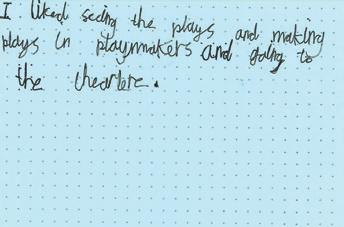 I liked seeing the plays and making
plays in playmakers and going to
the theartere.